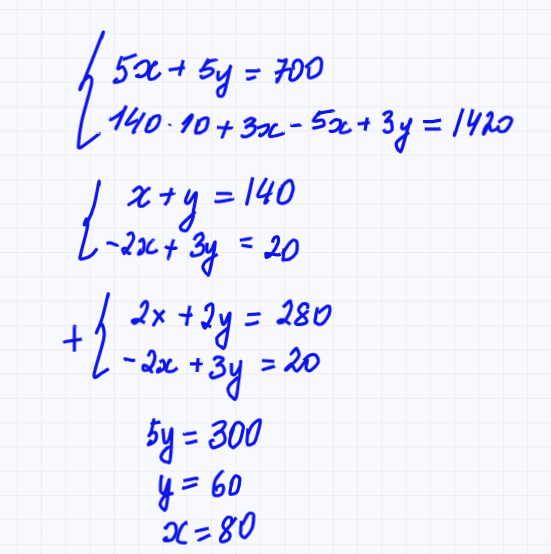 5x + 5y = 700
140 · 10 + 3x - 5x + 3y = 1420
x + y = 140
-2x + 3y = 20
2x + 2y = 280
+
-2x + 3y = 20
5y = 300
y = 60
x = 80